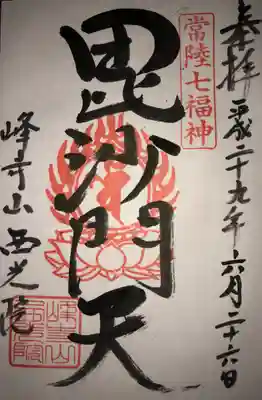 奉拝
平成二十九年六月二十六日
常陸七福神
毘沙門天
峰寺山西光院